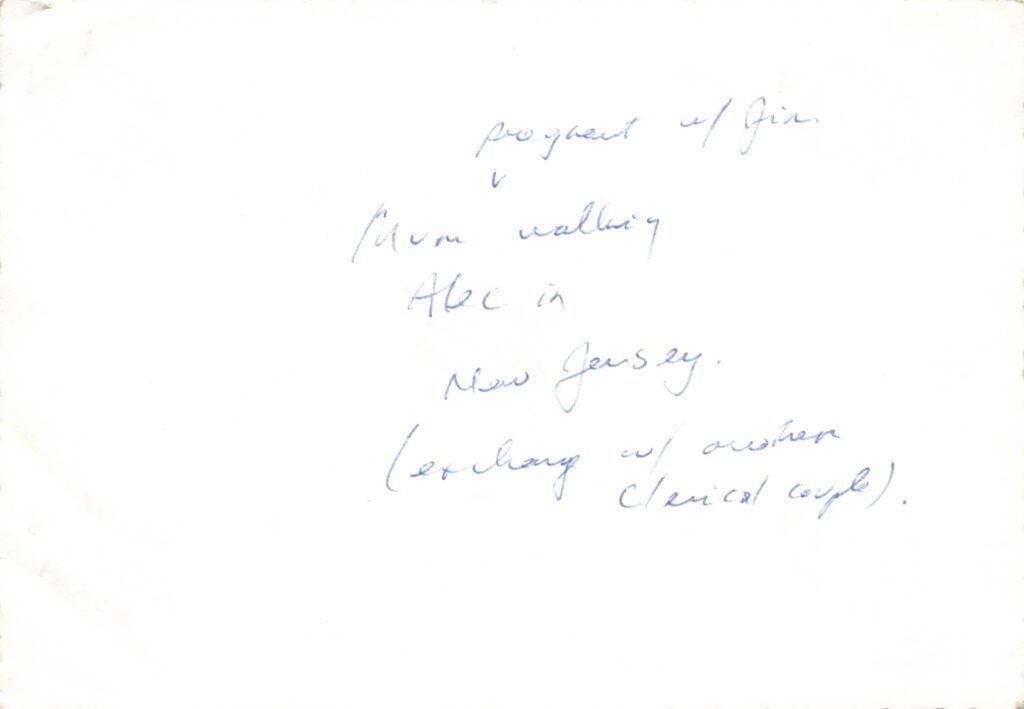 pregnant w/ Jim
Mum walking
Alec in
New Jersey.
(exchange w/ another
clerical couple).